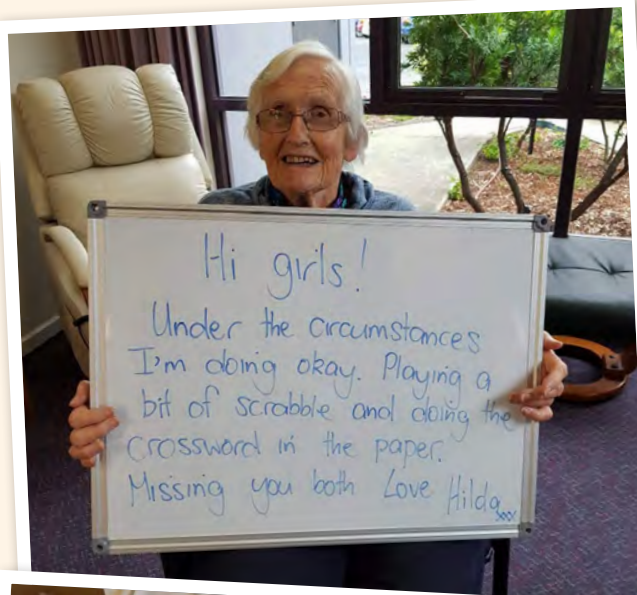 Hi girls!
Under the circumstances
I'm doing okay. Playing a
bit of scrabble and doing the
crossword in the paper.
Missing you both Love Hilda
xxx